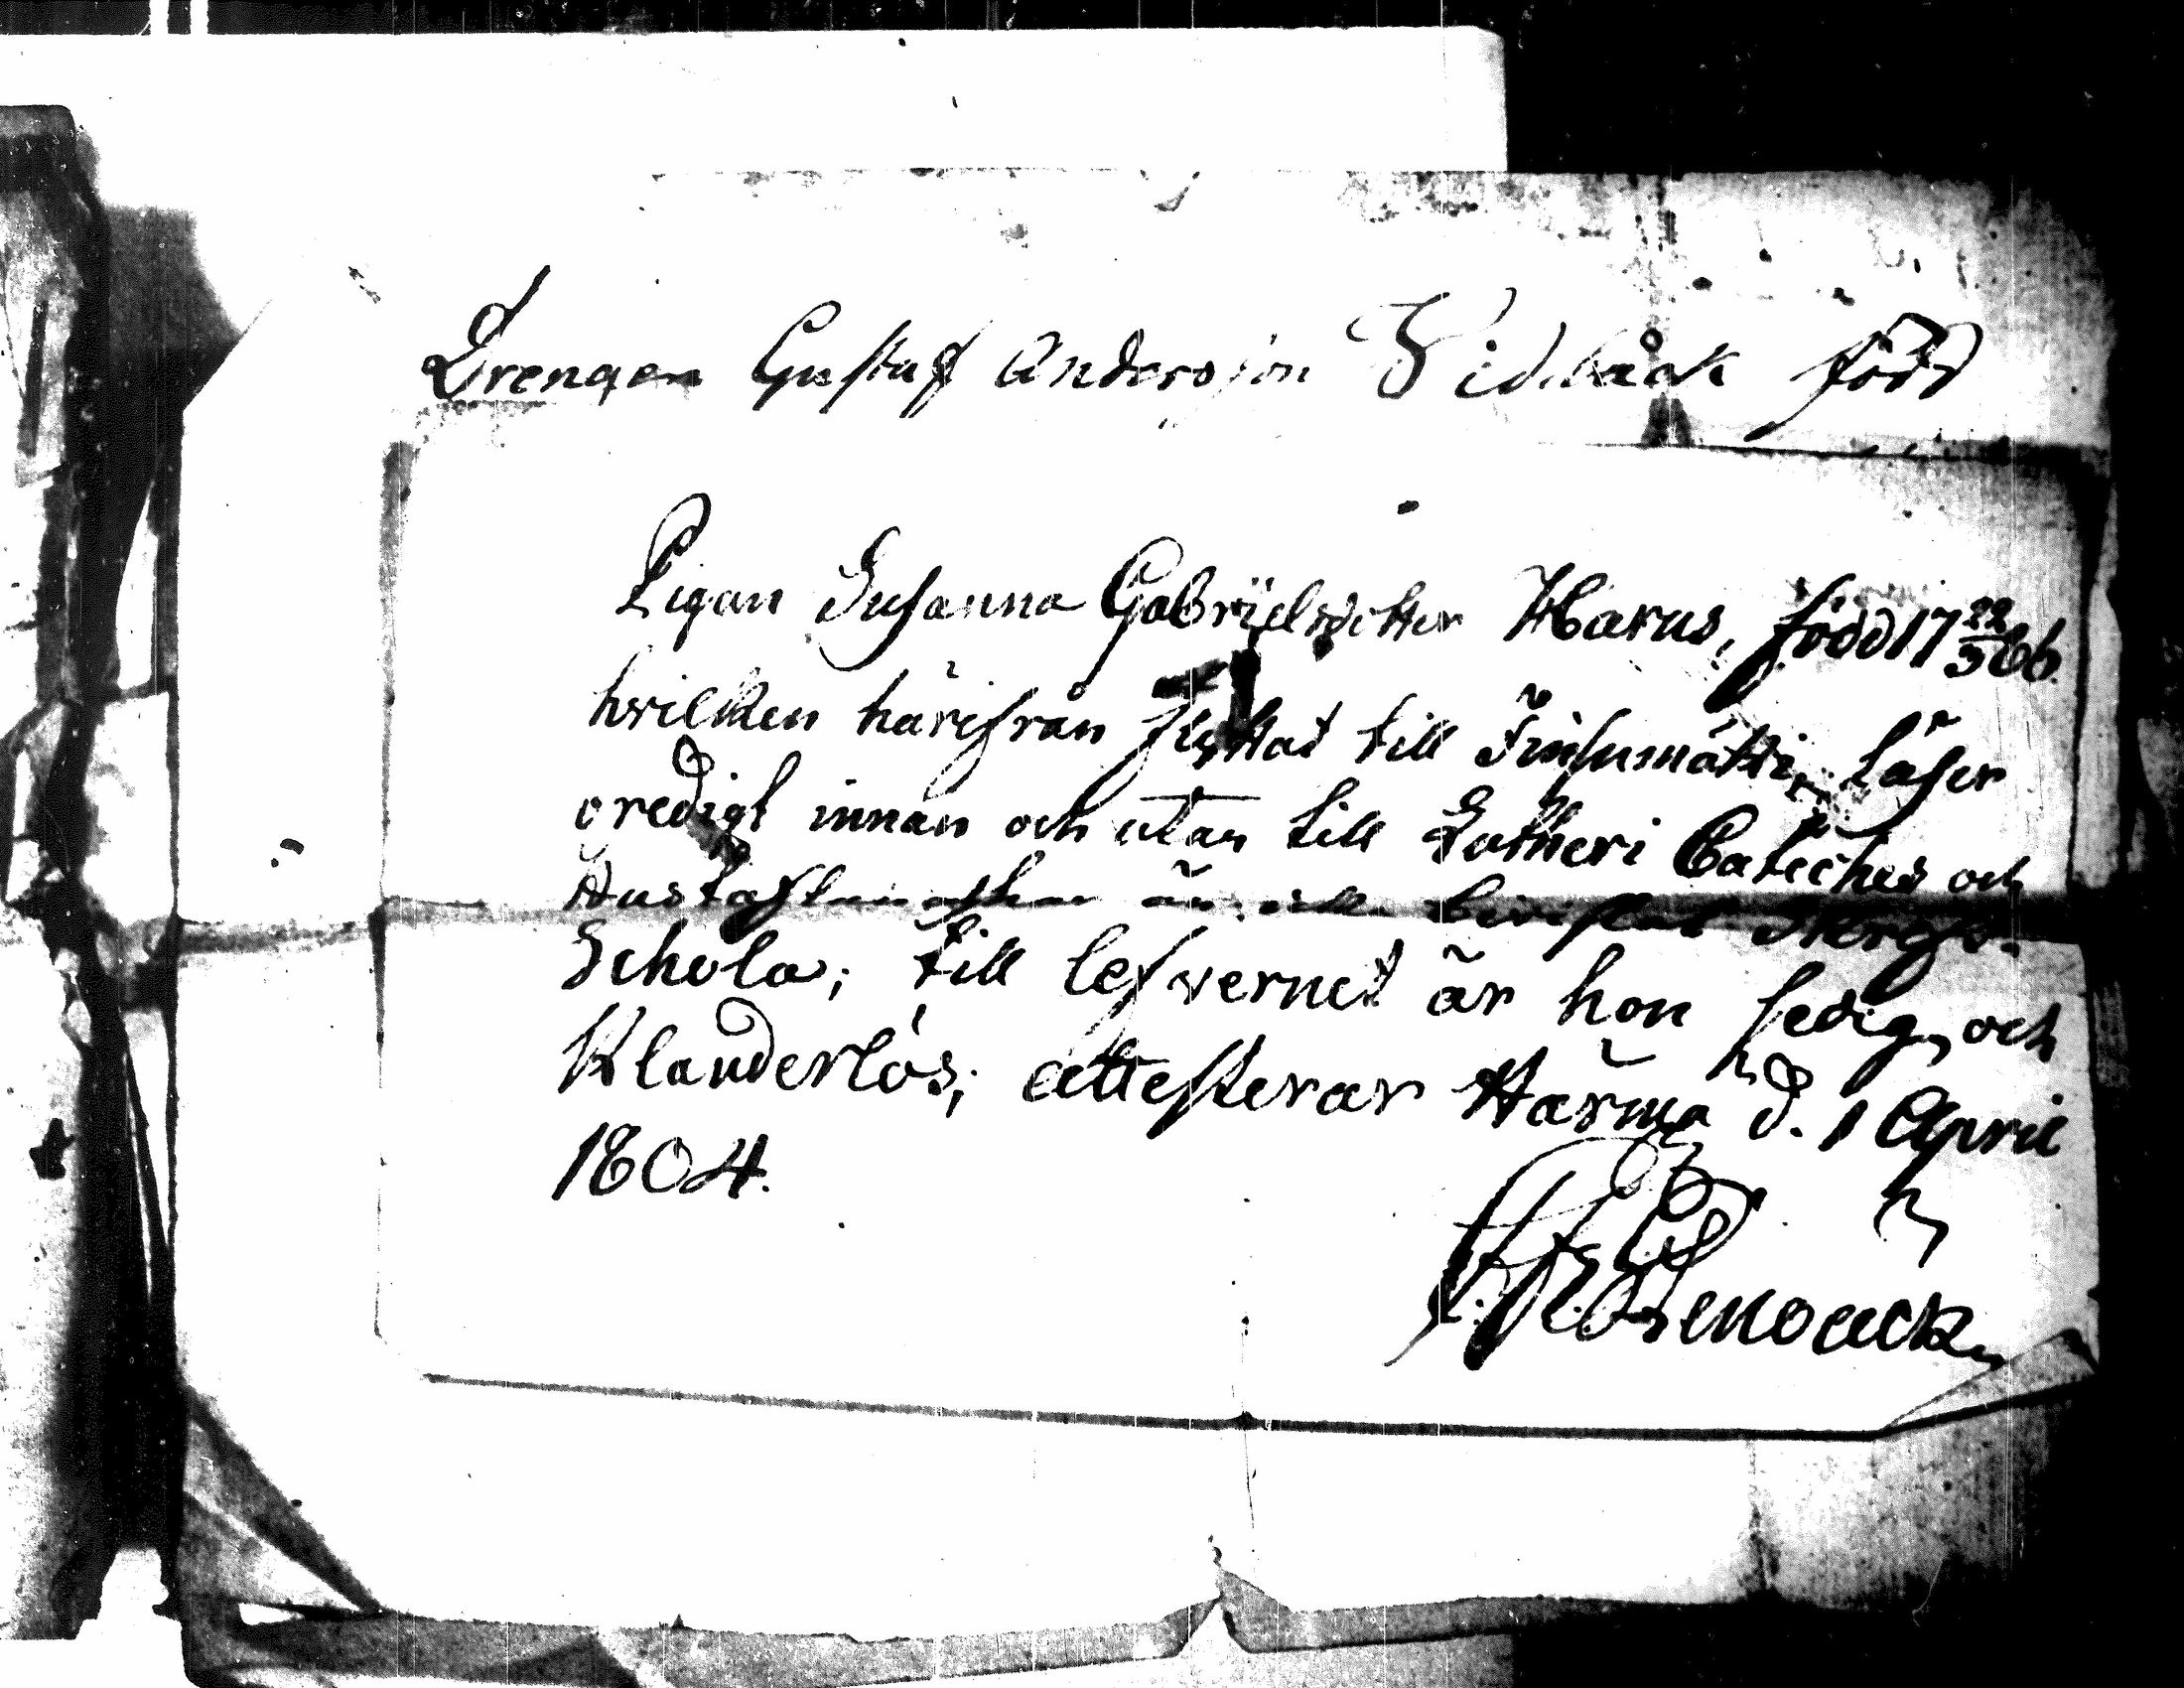 Drengen Gustaf Andersson Vidbäck född
Pigan Susanna Gabrielsdotter Harus, född 17 22/3 86.
hvilken härifrån flyttat till läser
oredigt innan och utan till Lutheri Cateches och
Hustaflan
Schola; till lefvernet är hon sedig, och
Klanderlös; attesterar Härmä d. 1 April
1804.